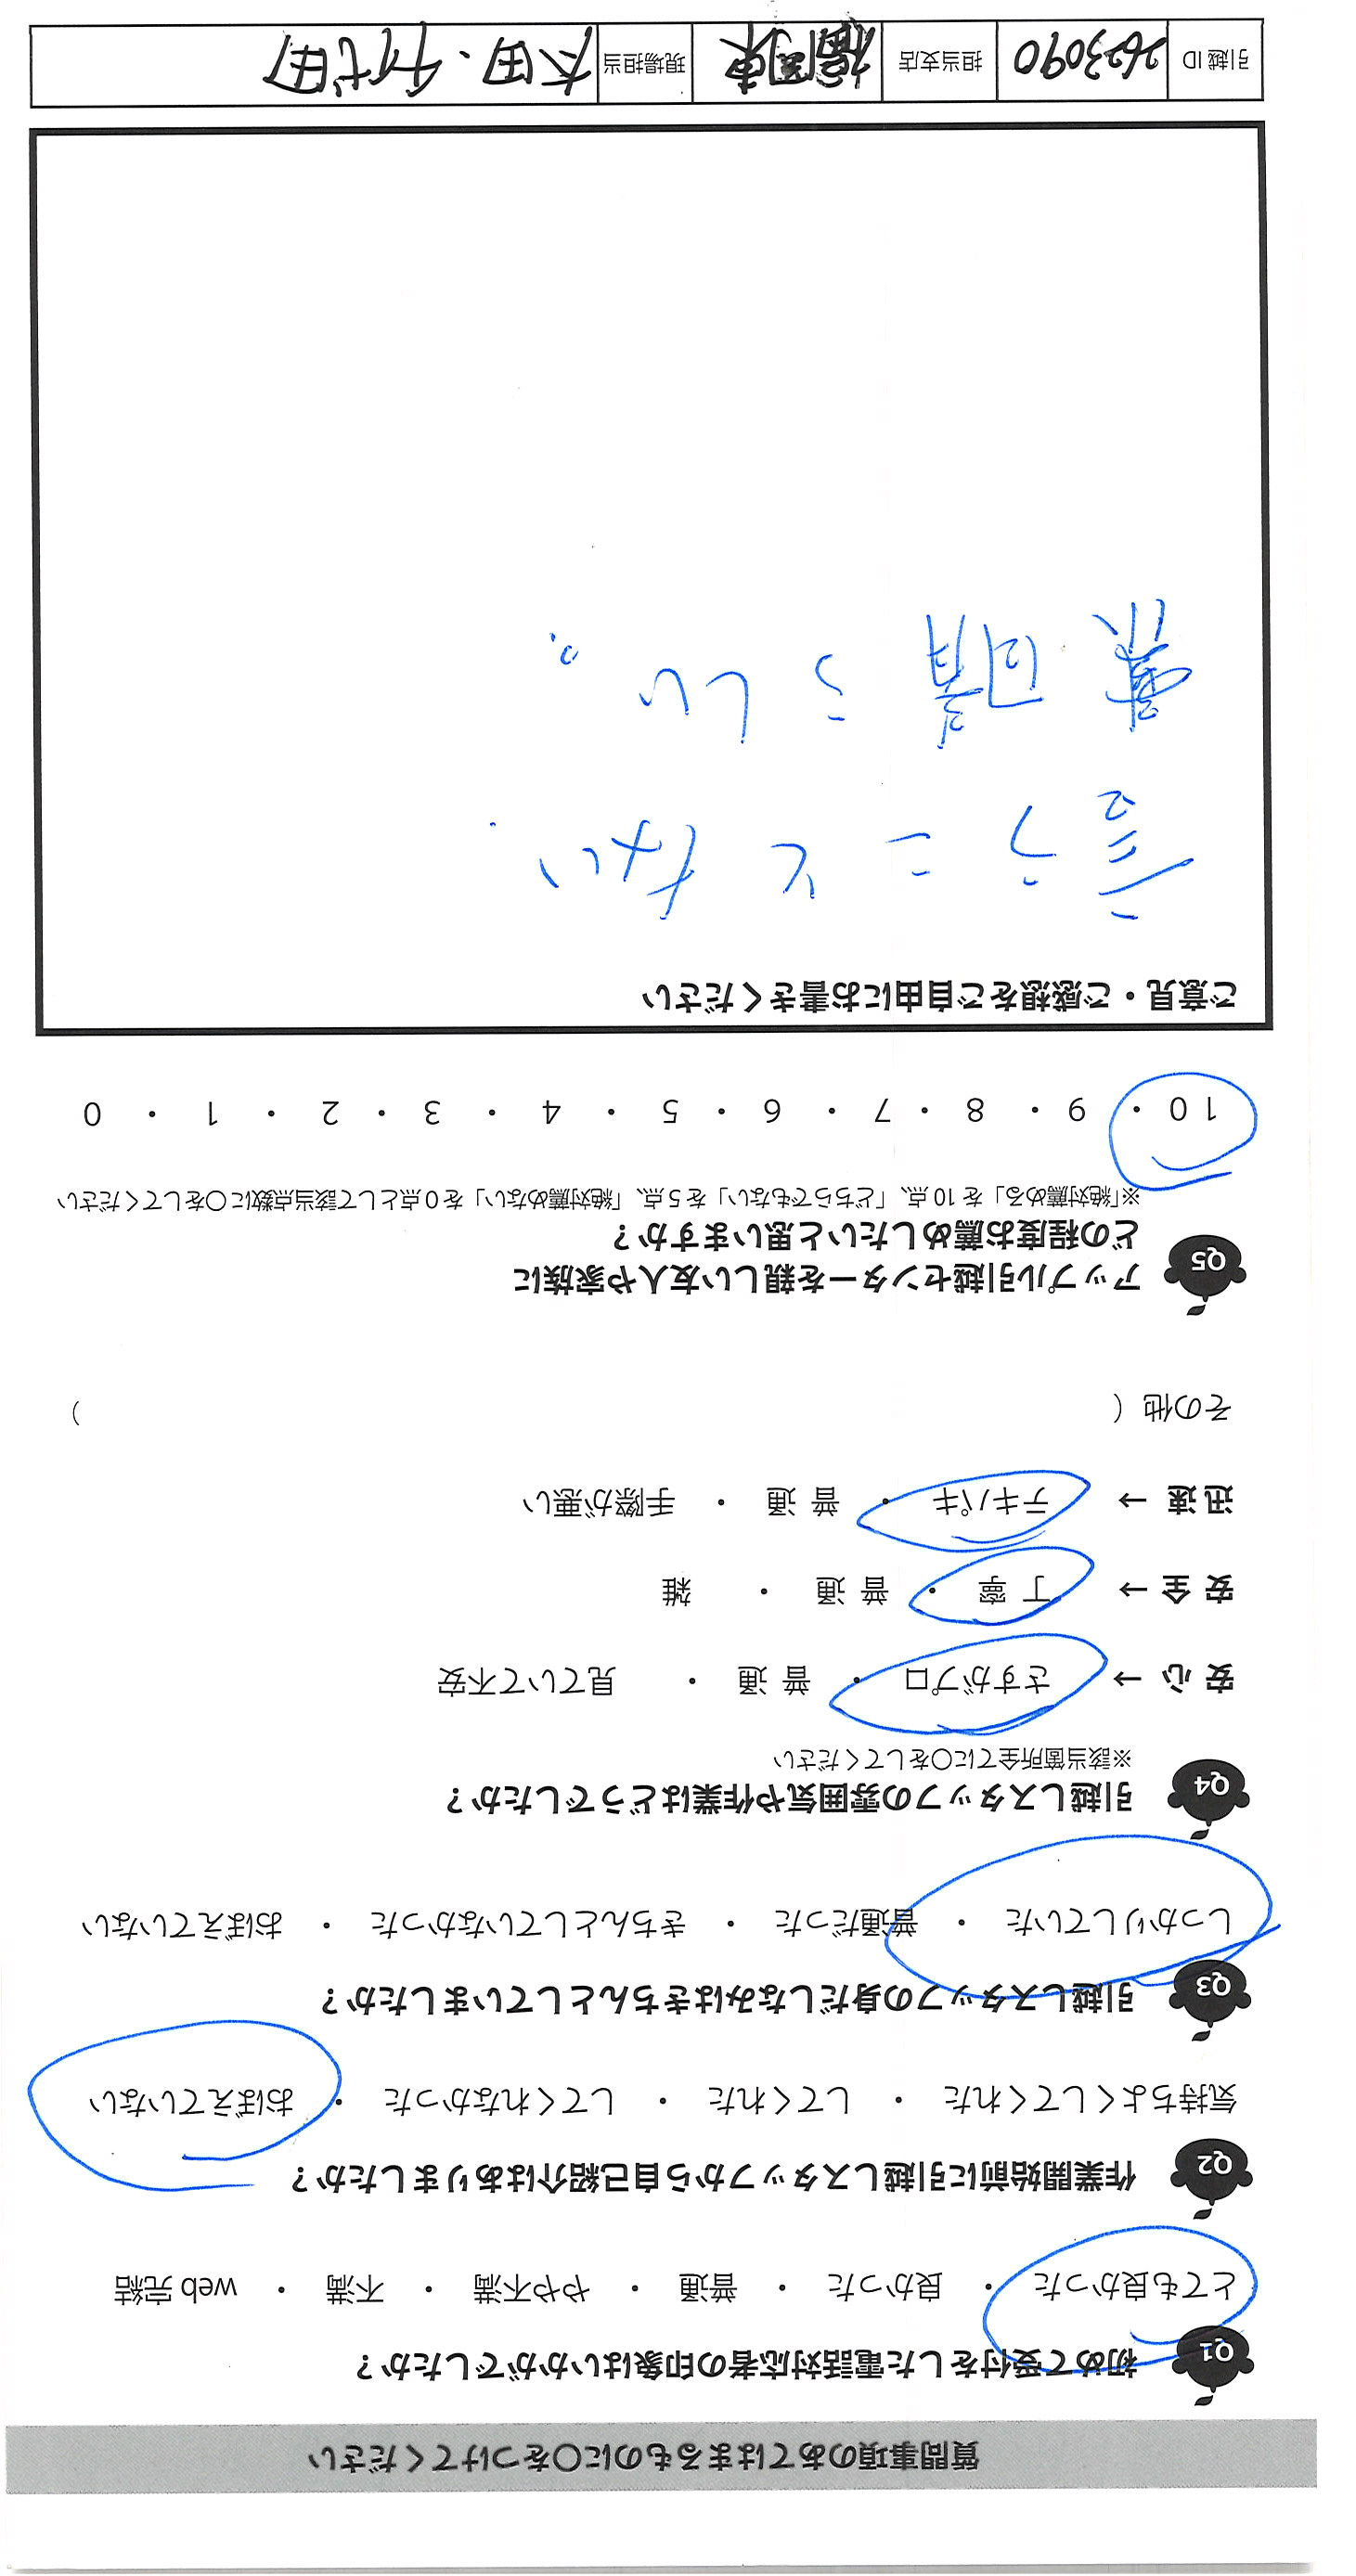 質問事項のあてはまるものに〇をつけてください
Q1 初めて受付をした電話対応者の印象はいかがでしたか？
とても良かった ・ 良かった ・ 普通 ・ やや不満 ・ 不満 ・ web 完結
Q2 作業開始前に引越しスタッフから自己紹介はありましたか？
気持ちよくしてくれた ・ してくれた ・ してくれなかった ・ おぼえていない
Q3 引越しスタッフの身だしなみはきちんとしていましたか？
しっかりしていた ・ 普通だった ・ きちんとしていなかった ・ おぼえていない
Q4 引越しスタッフの雰囲気や作業はどうでしたか？
※該当箇所全てに〇をしてください
安 心 → さすがプロ ・ 普 通 ・ 見ていて不安
安 全 → 丁 寧 ・ 普 通 ・ 雑
迅 速 → テキパキ ・ 普 通 ・ 手際が悪い
その他（ ）
Q5 アップル引越センターを親しい友人や家族に
どの程度お薦めしたいと思いますか？
※「絶対薦める」を 10 点、「どちらでもない」を 5 点、「絶対薦めない」を 0 点として該当点数に〇をしてください
10 ・ 9 ・ 8 ・ 7 ・ 6 ・ 5 ・ 4 ・ 3 ・ 2 ・ 1 ・ 0
ご意見・ご感想をご自由にお書きください
言うことない
らしい。
引越 ID 2623090 担当支店 福岡東 現場担当 太田・千代田